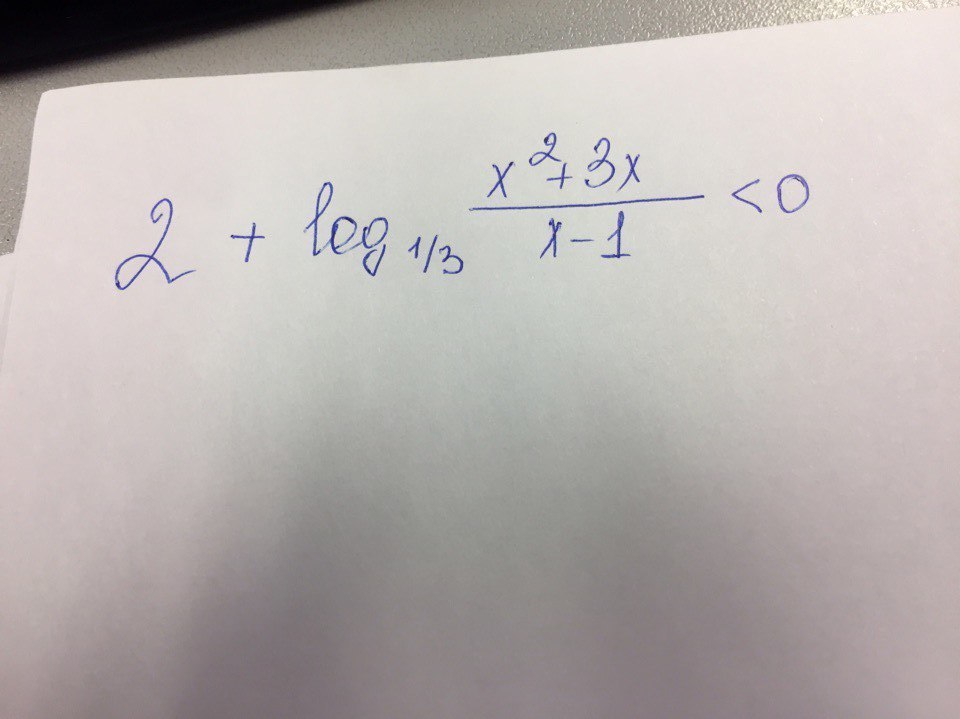 2 + log_{1/3} \frac{x^2+3x}{x-1} < 0